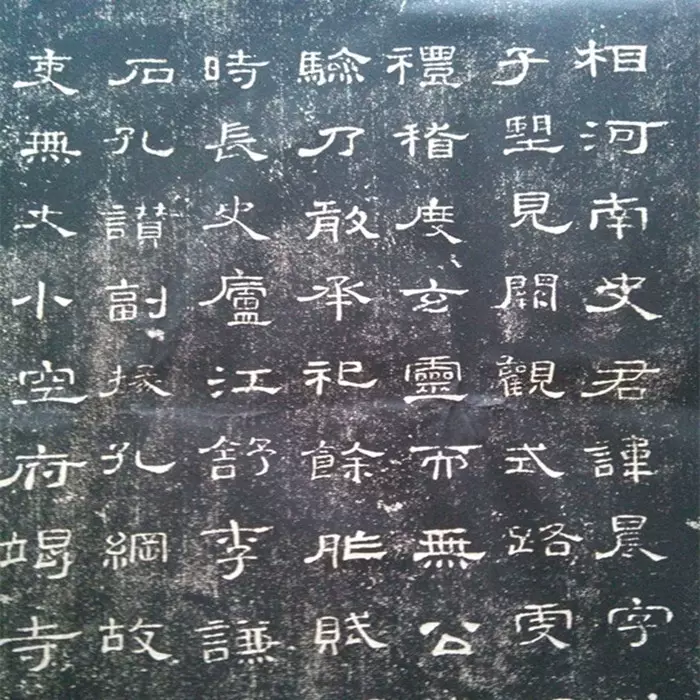 相河南史君諱晨字
子望見闕觀式路虔
禮稽度玄靈而無公
驗乃敢承祀餘胙賦
時長史廬江舒李謙
石孔讃副掾孔綱故
吏無大小空府竭寺